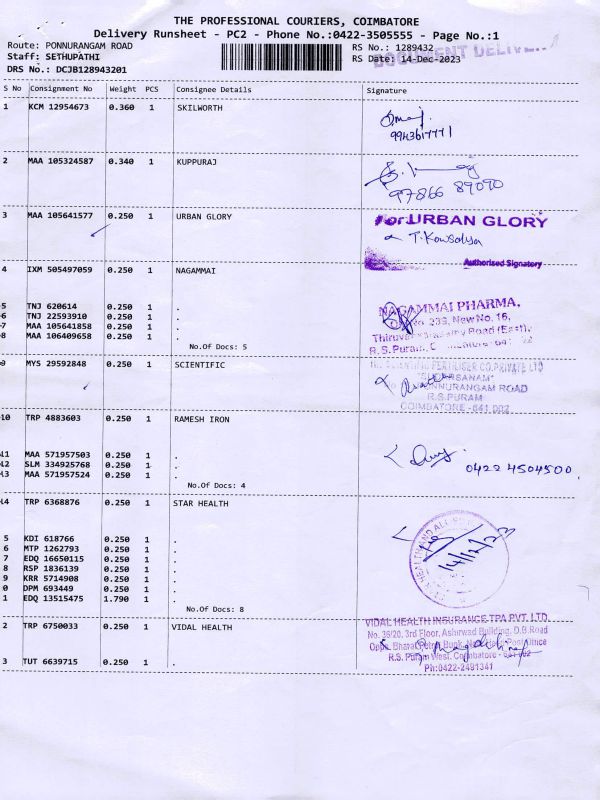 THE PROFESSIONAL COURIERS, COIMBATORE
Delivery Runsheet - PC2 - Phone No.:0422-3505555 - Page No.:1
Route: PONNURANGAM ROAD
Staff: SETHUPATHI
DRS No.: DCJB128943201
RS No.: 1289432
RS Date: 14-Dec-2023
DOCUMENT DELIVE
S No Consignment No Weight PCS Consignee Details Signature
1 KCM 12954673 0.360 1 SKILWORTH
2 MAA 105324587 0.340 1 KUPPURAJ
97866 89090
3 MAA 105641577 0.250 1 URBAN GLORY
For URBAN GLORY
T. Kowsalya
Authorised Signatory
4 IXM 505497059 0.250 1 NAGAMMAI
5 TNJ 620614 0.250 1 .
6 TNJ 22593910 0.250 1 .
7 MAA 105641858 0.250 1 .
8 MAA 106409658 0.250 1 .
No.Of Docs: 5
NAGAMMAI PHARMA,
239, New No. 16,
Road (East),
R.S. Puram,
9 MYS 29592848 0.250 1 SCIENTIFIC
FERTILISER CO. PRIVATE LTD
PONNURANGAM ROAD
R.S. PURAM
COIMBATORE - 641 002
10 TRP 4883603 0.250 1 RAMESH IRON
11 MAA 571957503 0.250 1 .
12 SLM 334925768 0.250 1 .
13 MAA 571957524 0.250 1 .
No.Of Docs: 4
0422 4504500
14 TRP 6368876 0.250 1 STAR HEALTH
5 KDI 618766 0.250 1 .
6 MTP 1262793 0.250 1 .
7 EDQ 16650115 0.250 1 .
8 RSP 1836139 0.250 1 .
9 KRR 5714908 0.250 1 .
0 DPM 693449 0.250 1 .
1 EDQ 13515475 1.790 1 .
No.Of Docs: 8
14/12/23
2 TRP 6750033 0.250 1 VIDAL HEALTH
3 TUT 6639715 0.250 1 .
VIDAL HEALTH INSURANCE TPA PVT. LTD.
No. 36/20, 3rd Floor, Ashirwad Building, D.B. Road
Opp. Bharat Petrol Bunk, Post Office
R.S. Puram West, Coimbatore - 641 002
Ph:0422-2491341